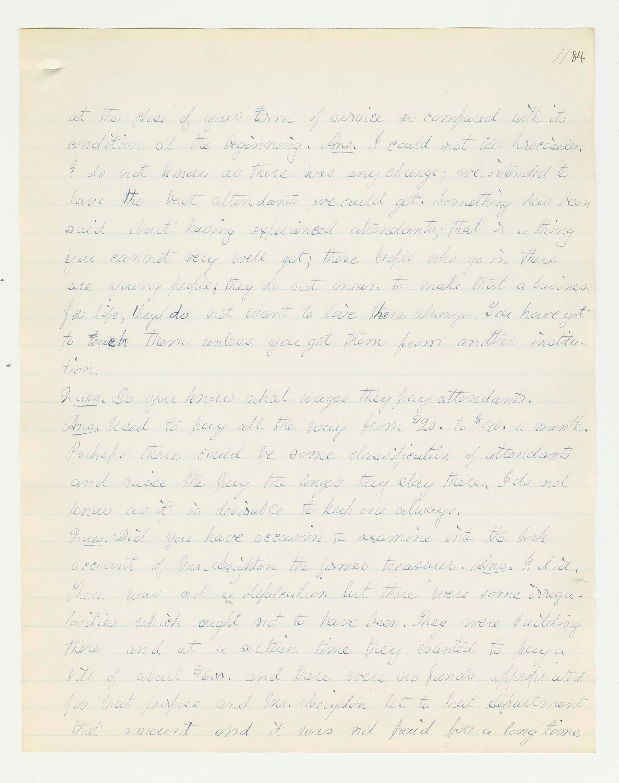 11 84
at the close of your term of service as compared with its
condition at the beginning. Ans. I could not tell precisely.
I do not know as there was any change; we intended to
have the best attendants we could get. Something has been
said about having experienced attendants; that is a thing
you cannot very well get; those people who go in there
are young people; they do not mean to make that a business
for life, they do not want to live there always. You have got
to teach them unless you get them from another institu-
tion.
Ques. Do you know what wages they pay attendants.
Ans. Used to pay all the way from $20. to $40. a month.
Perhaps there could be some classification of attendants
and raise the pay the longer they stay there. I do not
know as it is desirable to keep one always.
Ques. Did you have occasion to examine into the book
account of Mr. Leighton the former treasurer. Ans. I did.
There was not a defalcation but there were some irregu-
larities which ought not to have been. They were building
there and at a certain time they wanted to pay a
bill of about and there were no funds appropriated
for that purpose and Mr. Leighton let to that department
that amount and it was not paid for a long time